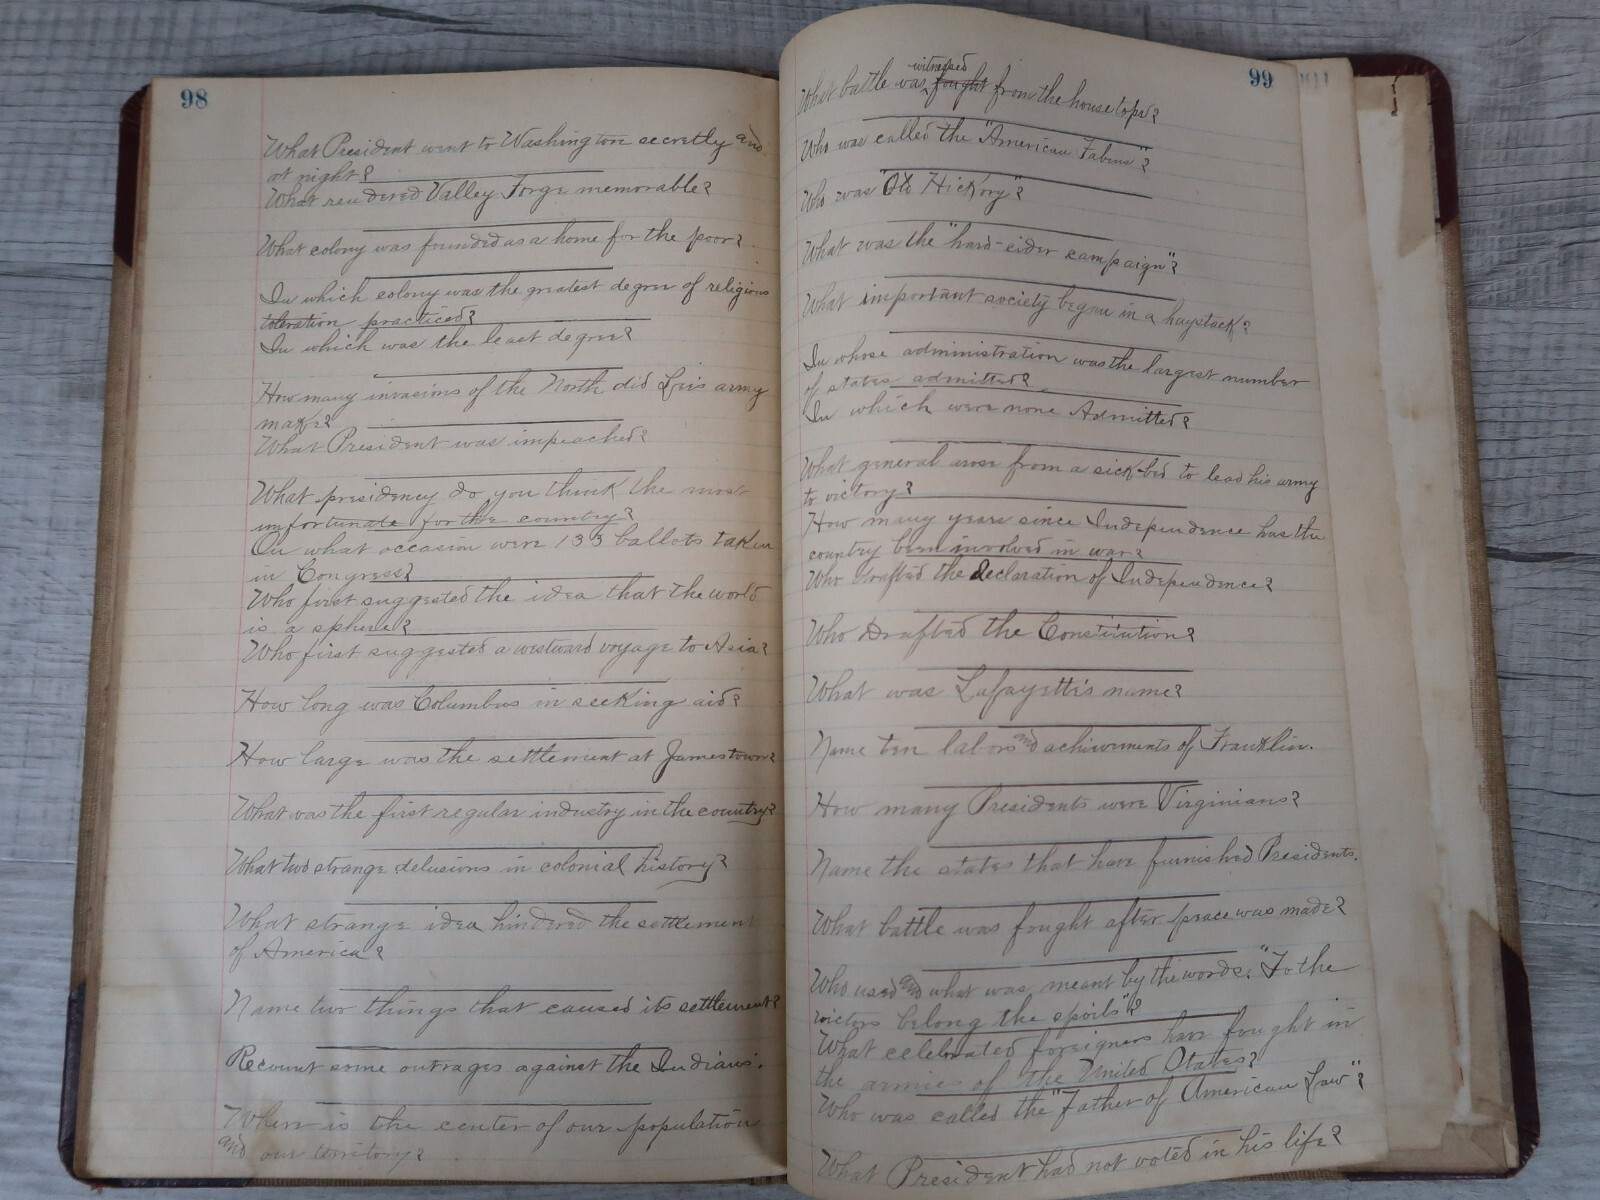 98
What President went to Washington secretly and
at night?
What rendered Valley Forge memorable?
What colony was founded as a home for the poor?
In which colony was the greatest degree of religious
toleration practiced?
In which was the least degree?
How many invasions of the North did Lee's army
make?
What President was impeached?
What presidency do you think the most
unfortunate for the country?
On what occasion were 133 ballots taken
in Congress?
Who first suggested the idea that the world
is a sphere?
Who first suggested a westward voyage to Asia?
How long was Columbus in seeking aid?
How large was the settlement at Jamestown?
What was the first regular industry in the country?
What two strange delusions in colonial history?
What strange idea hindered the settlement
of America?
Name two things that caused its settlement?
Recount some outrages against the Indians.
Where is the center of our population
and our territory?
99
What battle was witnessed fought from the housetops?
Who was called the "American Fabius"?
Who was "Old Hickory"?
What was the "hard-cider campaign"?
What important society began in a haystack?
In whose administration was the largest number
of states admitted?
In which were none Admitted?
What general arose from a sick-bed to lead his army
to victory?
How many years since Independence has the
country been involved in war?
Who drafted the declaration of Independence?
Who Drafted the Constitution?
What was Lafayette's name?
Name ten labors and achievements of Franklin.
How many Presidents were Virginians?
Name the states that have furnished Presidents.
What battle was fought after peace was made?
Who used and what was meant by the words: "To the
victors belong the spoils"?
What celebrated foreigners have fought in
the armies of the United States?
Who was called the "Father of American Law"?
What President had not voted in his life?